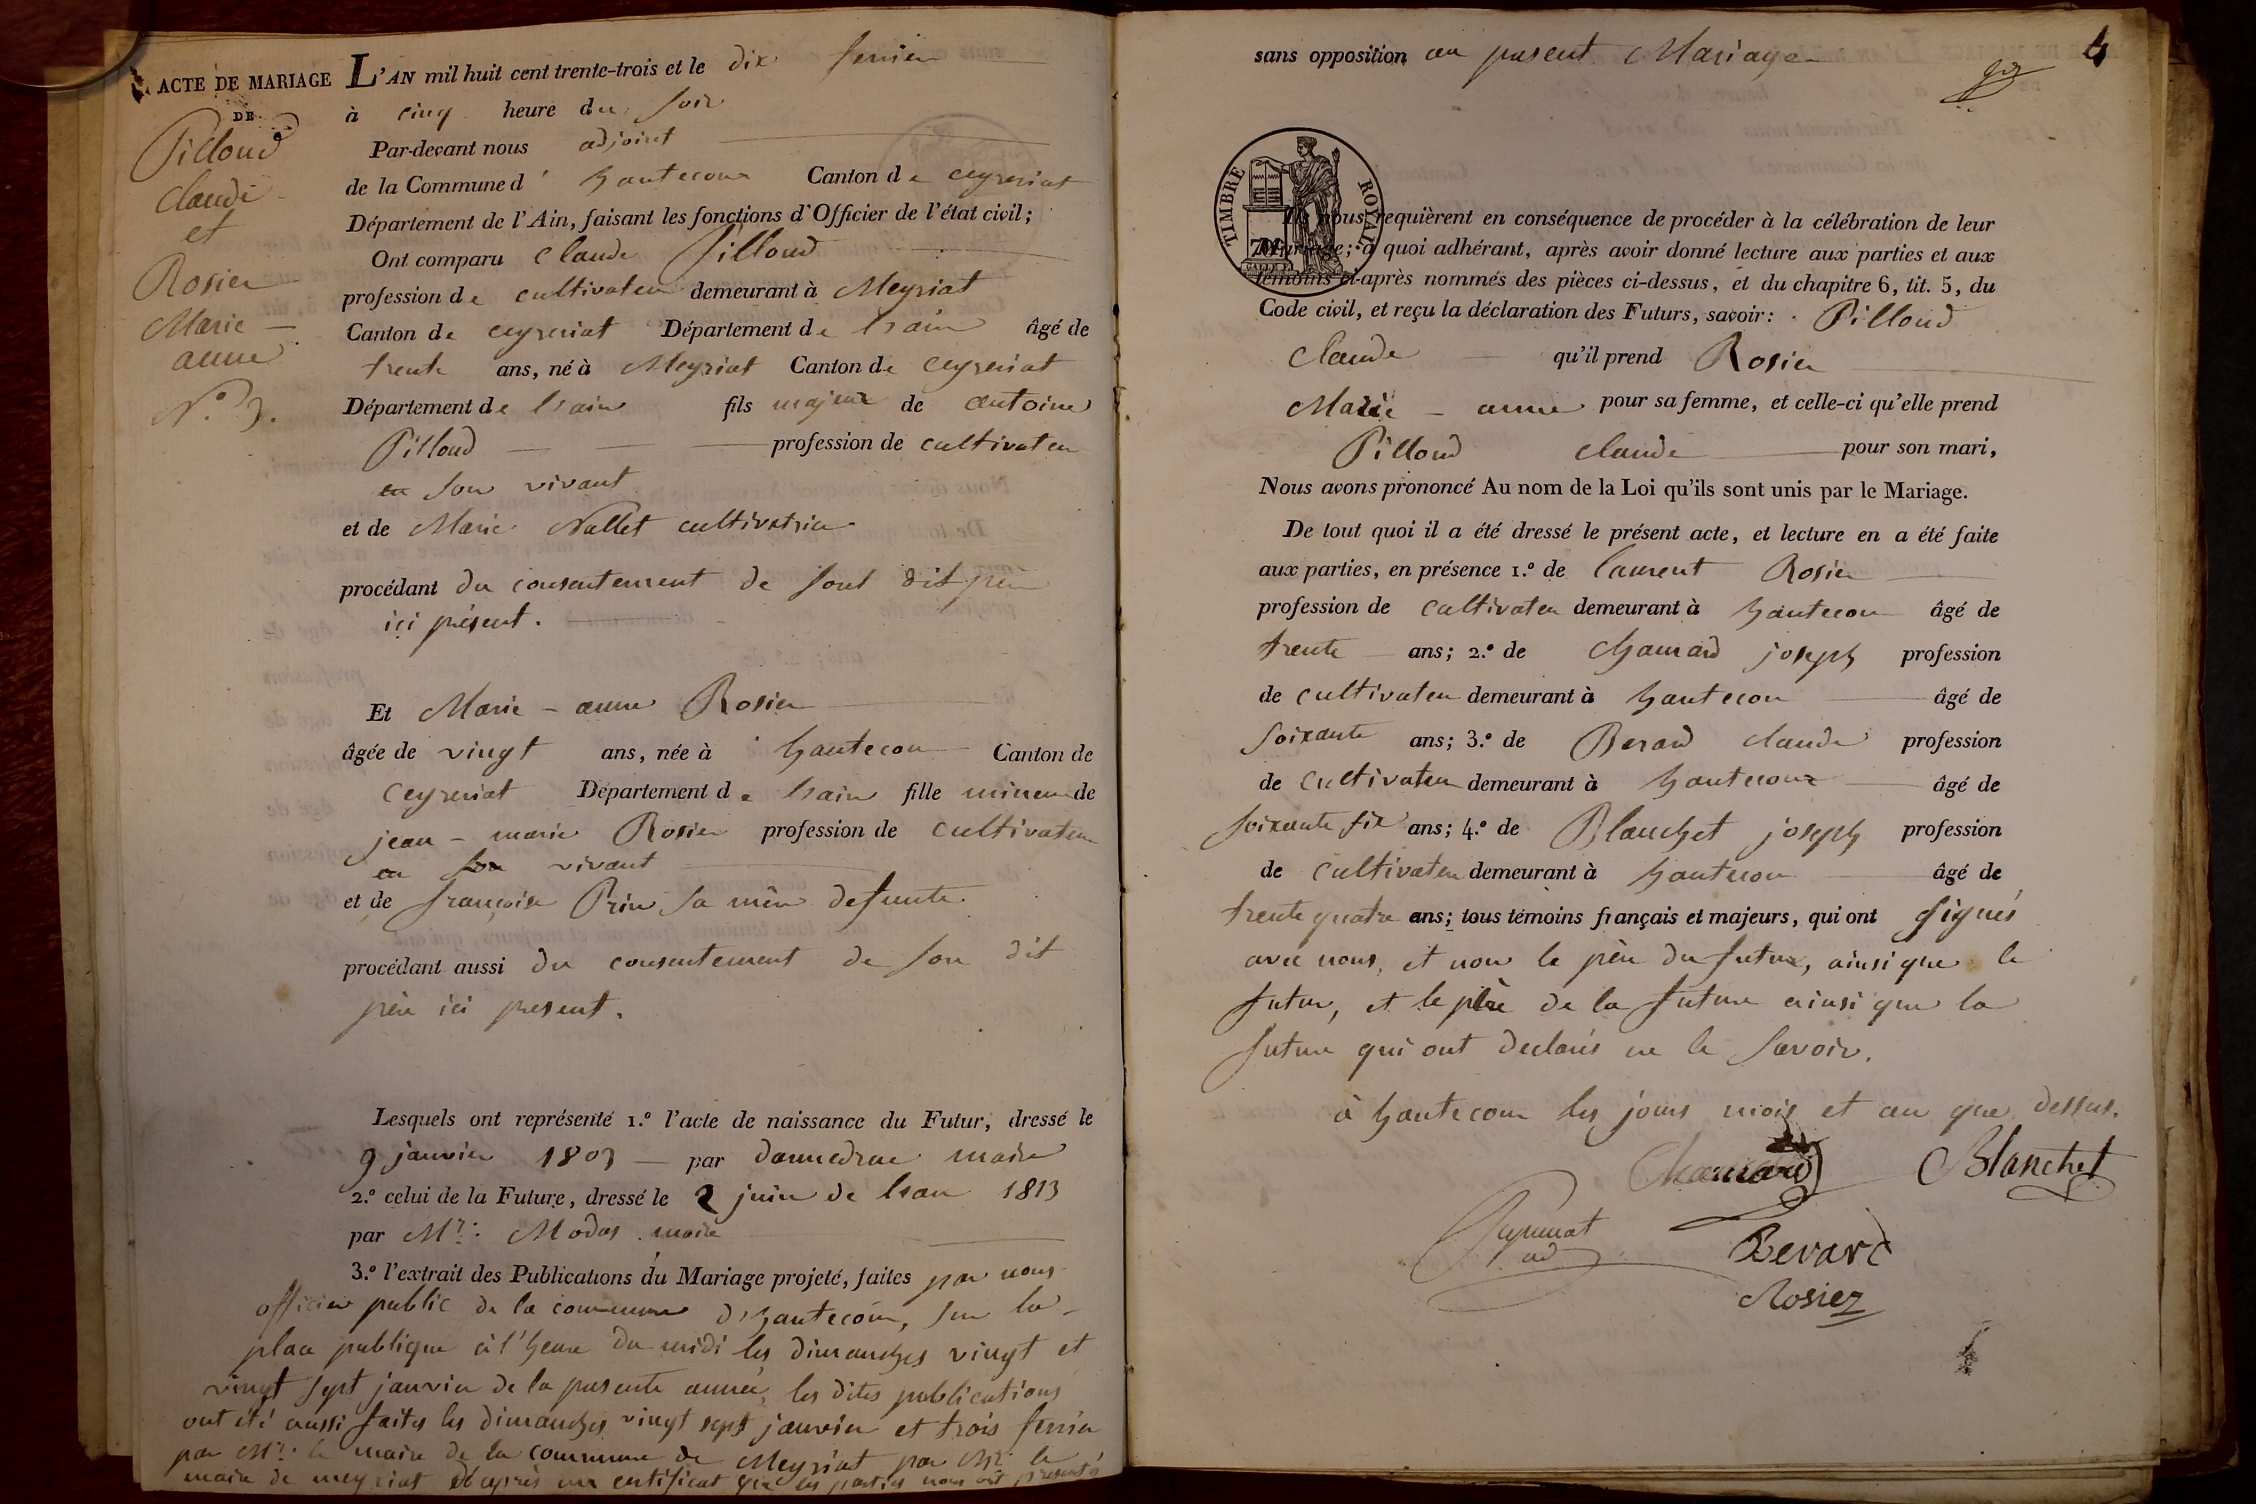 ACTE DE MARIAGE
DE
Pilloud
Claude
et
Rosier
Marie -
anne
N.º 3.
L'AN mil huit cent trente-trois et le dix fevrier
à cinq heure du soir
Par-devant nous adjoint
de la Commune d' hautecour Canton de ceyzeriat
Département de l'Ain, faisant les fonctions d'Officier de l'état civil;
Ont comparu Claude Pilloud
profession de cultivateur demeurant à Meyriat
Canton de ceyzeriat Département de l'sain âgé de
trente ans, né à Meyriat Canton de ceyzeriat
Département de l'sain fils majeur de antoine
Pilloud profession de cultivateur
en son vivant
et de Marie Nallet cultivatrice
procédant du consentement de sont dit père
ici présent.
Et Marie - anne Rosier
âgée de vingt ans, née à hautecour Canton de
Ceyzeriat Département de l'sain fille mineur de
jean - marie Rosier profession de cultivateur
en son vivant
et de françoise Prin sa mère defunte
procédant aussi du consentement de son dit
père ici present.
Lesquels ont représenté 1.º l'acte de naissance du Futur, dressé le
9 janvier 1803 par maire
2.º celui de la Future, dressé le 2 juin de l'san 1813
par Mr. Modas maire
3.º l'extrait des Publications du Mariage projeté, faites par nous
officier public de la commune d'hautecour, sur la
place publique à l'heure du midi les dimanches vingt et
vingt sept janvier de la presente année, les dites publications
ont été aussi faites les dimanches vingt sept janvier et trois fevrier
par Mr. le maire de la commune de Meyriat par Mr. le
maire de meyriat d'après un certificat que les parties nous ont presentés
4
sans opposition au present Mariage
TIMBRE ROYAL
Ils nous requièrent en conséquence de procéder à la célébration de leur
Mariage; à quoi adhérant, après avoir donné lecture aux parties et aux
témoins ci-après nommés des pièces ci-dessus, et du chapitre 6, tit. 5, du
Code civil, et reçu la déclaration des Futurs, savoir: Pilloud
Claude qu'il prend Rosier
Marie - anne pour sa femme, et celle-ci qu'elle prend
Pilloud claude pour son mari,
Nous avons prononcé Au nom de la Loi qu'ils sont unis par le Mariage.
De tout quoi il a été dressé le présent acte, et lecture en a été faite
aux parties, en présence 1.º de laurent Rosier
profession de cultivateur demeurant à hautecour âgé de
trente ans; 2.º de Chanard joseph profession
de cultivateur demeurant à hautecour âgé de
soixante ans; 3.º de Berard claude profession
de cultivateur demeurant à hautecour âgé de
soixante six ans; 4.º de Blanchet joseph profession
de cultivateur demeurant à hautecour âgé de
trente quatre ans; tous témoins français et majeurs, qui ont signés
avec nous, et non le père du futur, ainsi que le
futur, et le père de la future ainsi que la
future qui ont declarés ne le savoir.
à hautecour les jours mois et an que dessus.
Chanard Blanchet
Berard
Rosier